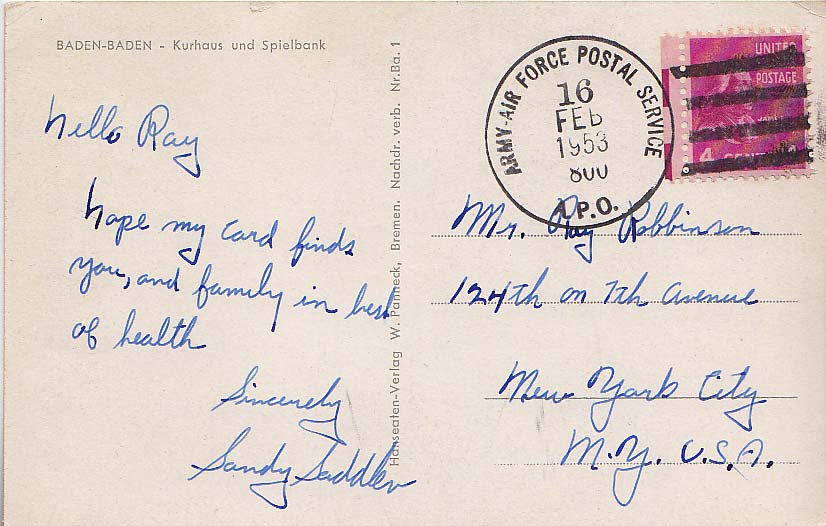 BADEN-BADEN - Kurhaus und Spielbank
Hello Ray
hope my card finds
you, and family in best
of health
Sincerely
Sandy Saddler
Hanseaten-Verlag W. Panneck, Bremen. Nachdr. verb. Nr.Ba. 1
ARMY-AIR FORCE POSTAL SERVICE
16
FEB
1953
800
A.P.O.
UNITED
POSTAGE
4 CENTS
Mr. Ray Robbinson
124th on 7th Avenue
New York City
N.Y. U.S.A.